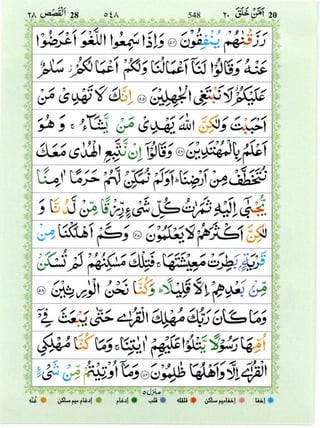 ٢٨ القصص 28 ٥٤٨ 548 امن خلق ٢٠ 20
رَزَقْنٰهُمْ يُنْفِقُوْنَ ﴿٥٤﴾ وَاِذَا سَمِعُوا اللَّغْوَ اَعْرَضُوْا
عَنْهُ وَقَالُوْا لَنَاۤ اَعْمَالُنَا وَلَكُمْ اَعْمَالُكُمْ سَلٰمٌ
عَلَيْكُمْ لَا نَبْتَغِى الْجٰهِلِيْنَ ﴿٥٥﴾ اِنَّكَ لَا تَهْدِىْ مَنْ
اَحْبَبْتَ وَلٰكِنَّ اللّٰهَ يَهْدِىْ مَنْ يَّشَآءُ ۚ وَهُوَ
اَعْلَمُ بِالْمُهْتَدِيْنَ ﴿٥٦﴾ وَقَالُوْۤا اِنْ نَّتَّبِعِ الْهُدٰى مَعَكَ
نُتَخَطَّفْ مِنْ اَرْضِنَا ؕ اَوَلَمْ نُمَكِّنْ لَّهُمْ حَرَمًا اٰمِنًا
يُّجْبٰٓى اِلَيْهِ ثَمَرٰتُ كُلِّ شَىْءٍ رِّزْقًا مِّنْ لَّدُنَّا وَ
لٰكِنَّ اَكْثَرَهُمْ لَا يَعْلَمُوْنَ ﴿٥٧﴾ وَكَمْ اَهْلَكْنَا مِنْ
قَرْيَةٍۭ بَطِرَتْ مَعِيْشَتَهَا ۚ فَتِلْكَ مَسٰكِنُهُمْ لَمْ تُسْكَنْ
مِّنْۢ بَعْدِهِمْ اِلَّا قَلِيْلًا ؕ وَكُنَّا نَحْنُ الْوٰرِثِيْنَ ﴿٥٨﴾
وَمَا كَانَ رَبُّكَ مُهْلِكَ الْقُرٰى حَتّٰى يَبْعَثَ فِىْۤ
اُمِّهَا رَسُوْلًا يَّتْلُوْا عَلَيْهِمْ اٰيٰتِنَا ۚ وَمَا كُنَّا مُهْلِكِى
الْقُرٰٓى اِلَّا وَاَهْلُهَا ظٰلِمُوْنَ ﴿٥٩﴾ وَمَاۤ اُوْتِيْتُمْ مِّنْ شَىْءٍ
منزل ٥
اخفا اخفا میم ساکن قلقلہ قلب ادغام ادغام میم ساکن غنّہ